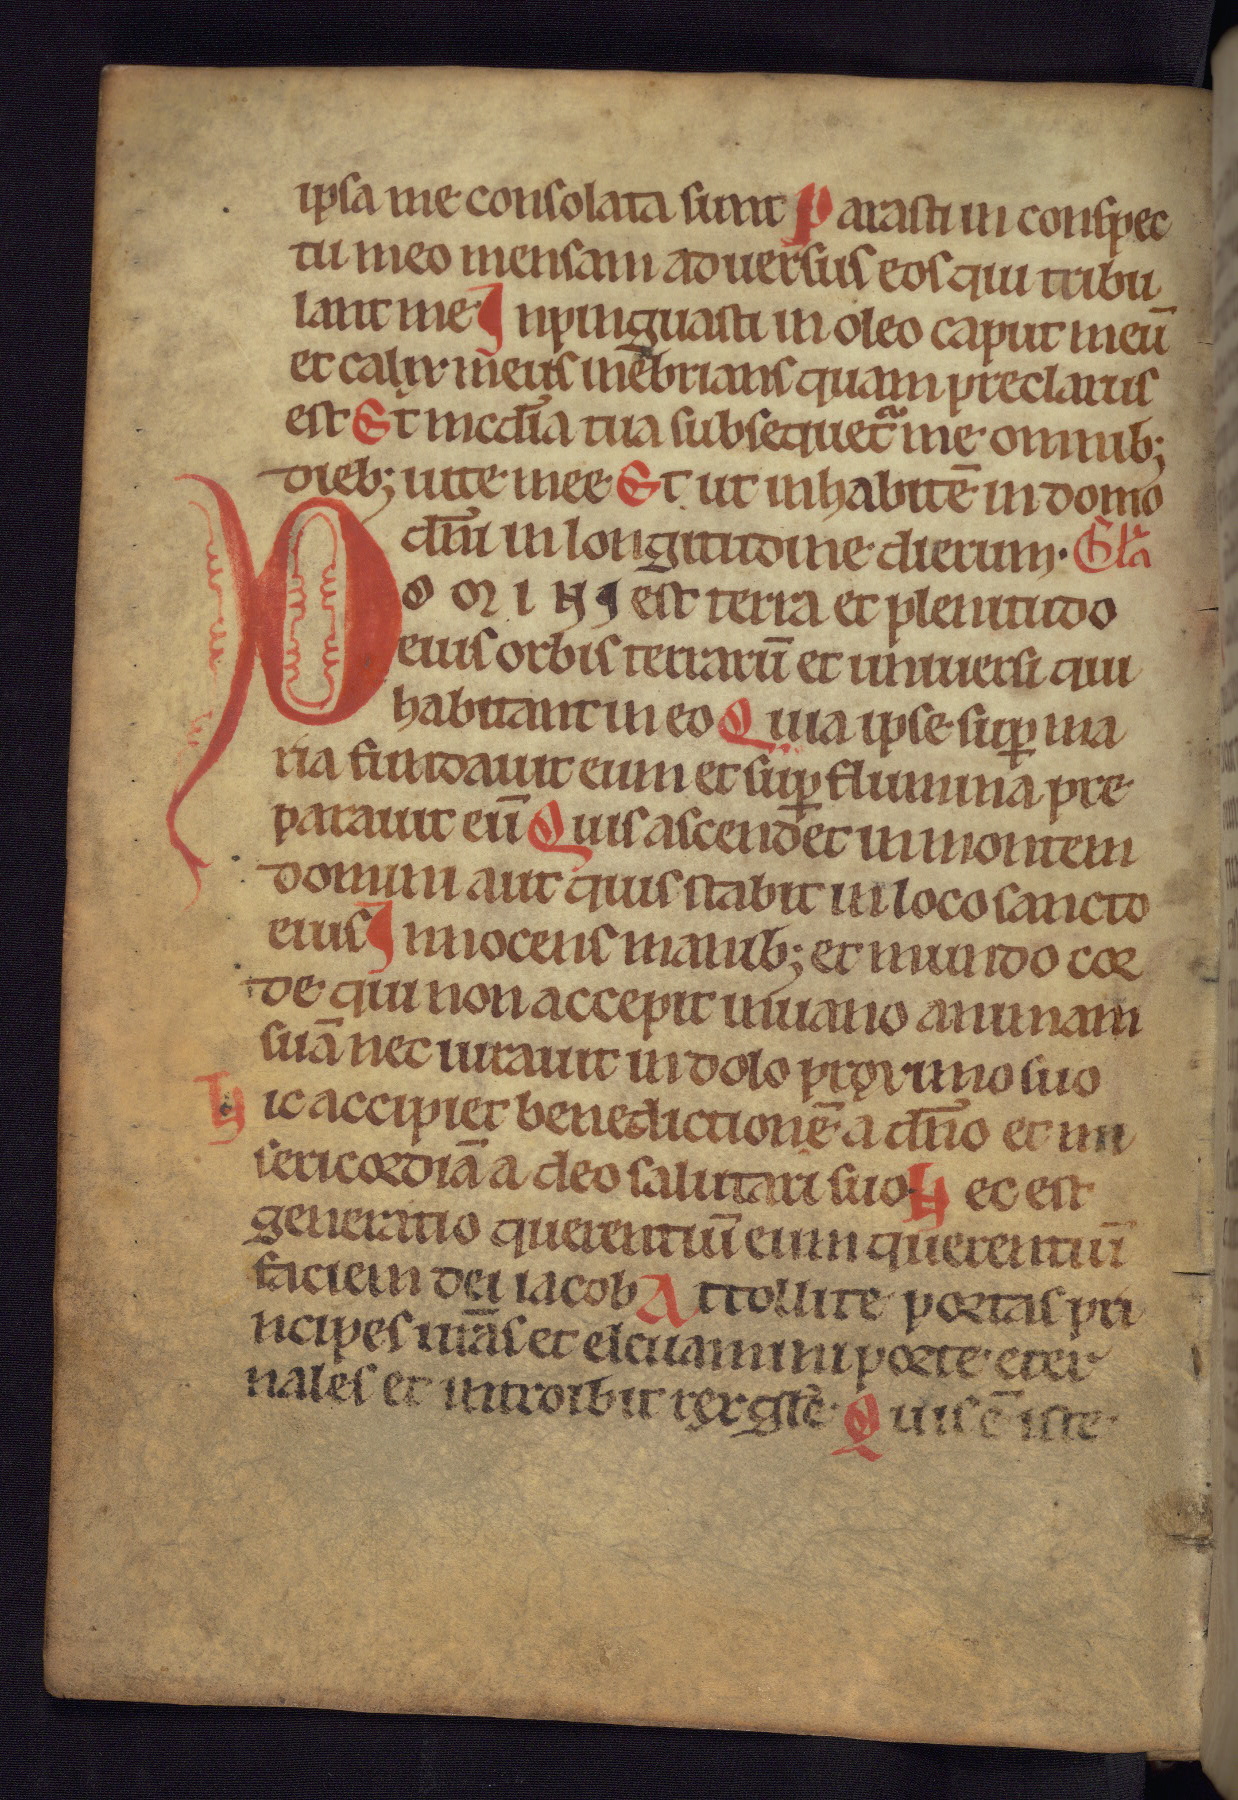 ipsa me consolata sunt Parasti in conspec
tu meo mensam aduersus eos qui tribu
lant me Inpinguasti in oleo caput meū
et calix meus inebrians quam preclarus
est Et mcdīa tua subsequetᷓ me omnib;
dieb; uite mee Et ut inhabitē in domo
dn̄i in longitudine dierum. Gl̄a
DOMINI est terra et plenitudo
eius orbis terrarū et uniuersi qui
habitant in eo Quia ipse suꝑ ma
ria fundauit eum et suꝑ flumina pre
parauit eū Quis ascendet in montem
domini aut quis stabit in loco sancto
eius Innocens manib; et mundo cor
de qui non accepit inuano animam
suā nec iurauit in dolo proximo suo
Hic accipiet benedictionē a dn̄o et mi
sericordiā a deo salutari suo Hec est
generatio querentiū eum querentiū
faciem dei iacob Attollite portas pri
ncipes ur̄as et eleuamini porte eter
nales et introibit rex gl̄e Quis ē iste